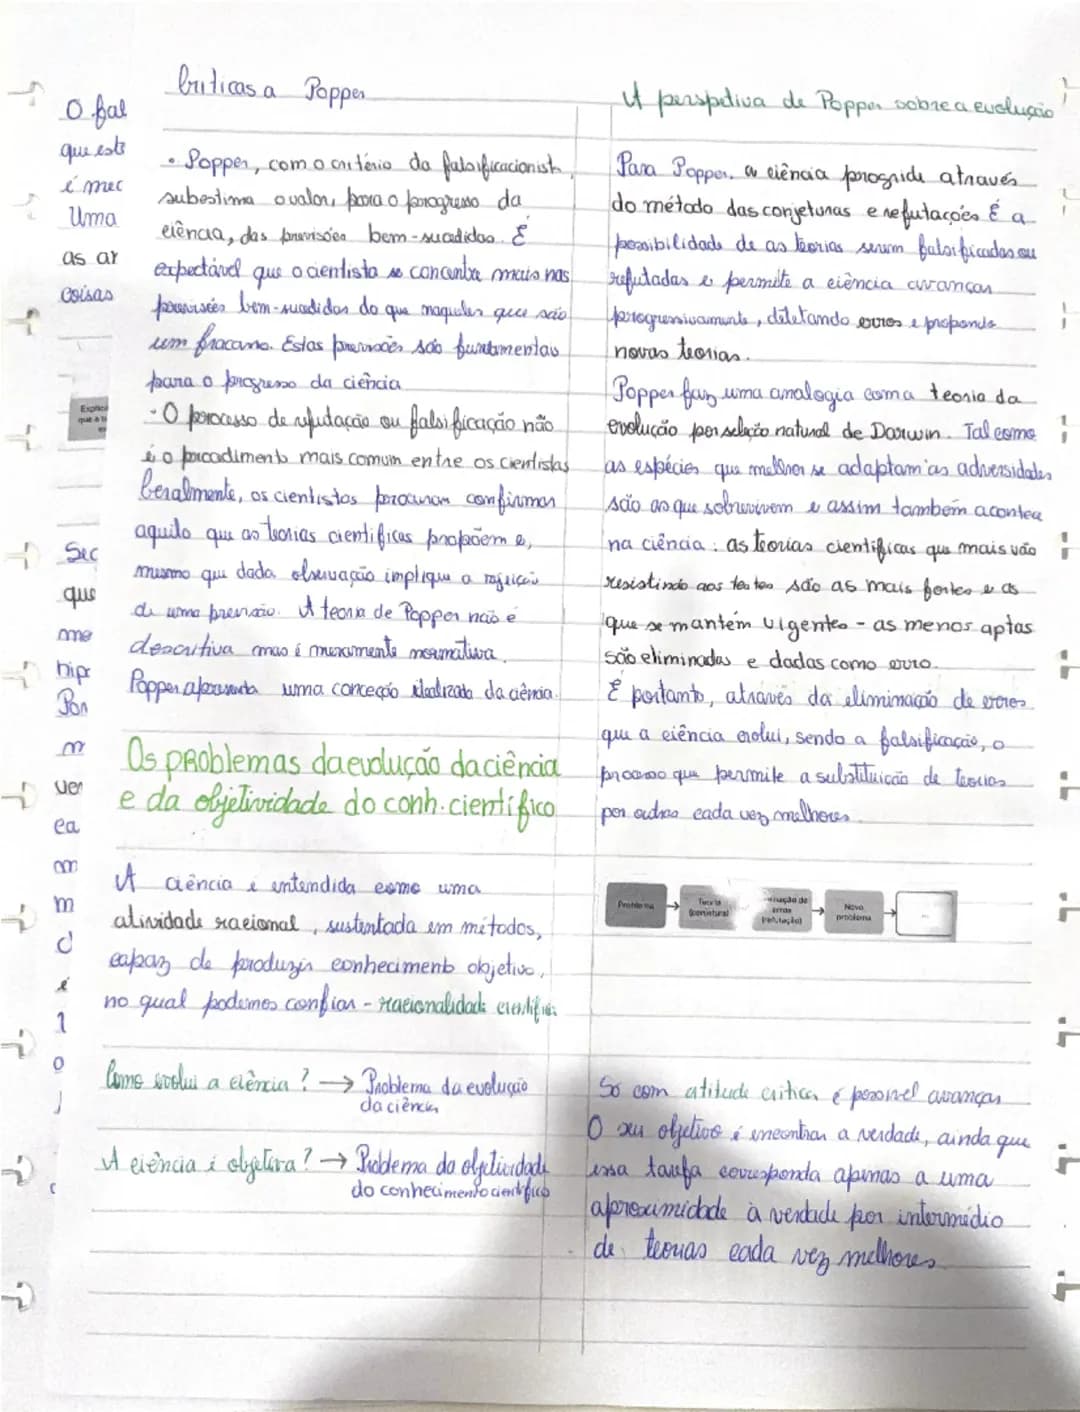 O fal
que este
é mec
Uma
as ar
coisas
Explica
que a t
Sec
que
me
hip
Por
m
ver
ea
m
d
é
1
o
Críticas a Popper
• Popper, com o critério da falsificacionista,
subestima o valor, para o progresso da
ciência, das previsões bem-sucedidas. É
expectável que o cientista se concentre mais nas
previsões bem-sucedidas do que naquelas que são
um fracasso. Estas previsões são fundamentais
para o progresso da ciência
• O processo de refutação ou falsificação não
é o procedimento mais comum entre os cientistas
Geralmente, os cientistas procuram confirmar
aquilo que as teorias científicas propõem e,
mesmo que dada observação implique a rejeição
de uma previsão. A teoria de Popper não é
descritiva mas é meramente normativa.
Popper apresenta uma conceção idealizada da ciência.
Os pRoblemas da evolução da ciência
e da objetividade do conh. científico
A ciência é entendida como uma
atividade racional, sustentada em métodos,
capaz de produzir conhecimento objetivo,
no qual podemos confiar - racionalidade científica
Como evolui a ciência? → Problema da evolução
da ciência
A ciência é objetiva? → Problema da objetividade
do conhecimento científico
A perspetiva de Popper sobre a evolução
Para Popper, a ciência progride através
do método das conjeturas e refutações É a
possibilidade de as teorias serem falsificadas ou
refutadas e permite a ciência avançar
progressivamente, detetando erros e propondo
novas teorias.
Popper faz uma analogia com a teoria da
evolução por seleção natural de Darwin. Tal como
as espécies que melhor se adaptam às adversidades
são as que sobrevivem e assim também acontece
na ciência: as teorias científicas que mais vão
resistindo aos testes são as mais fortes e as
que se mantêm vigentes - as menos aptas
são eliminadas e dadas como erro.
É portanto, através da eliminação de erros
que a ciência evolui, sendo a falsificação, o
processo que permite a substituição de teorias
por outras cada vez melhores.
Problema → Teoria (conjetura) → de erros (refutação) → Novo problema → ...
Só com atitude crítica é possível avançar
O seu objetivo é encontrar a verdade, ainda que
essa tarefa corresponda apenas a uma
aproximidade à verdade por intermédio
de teorias cada vez melhores.